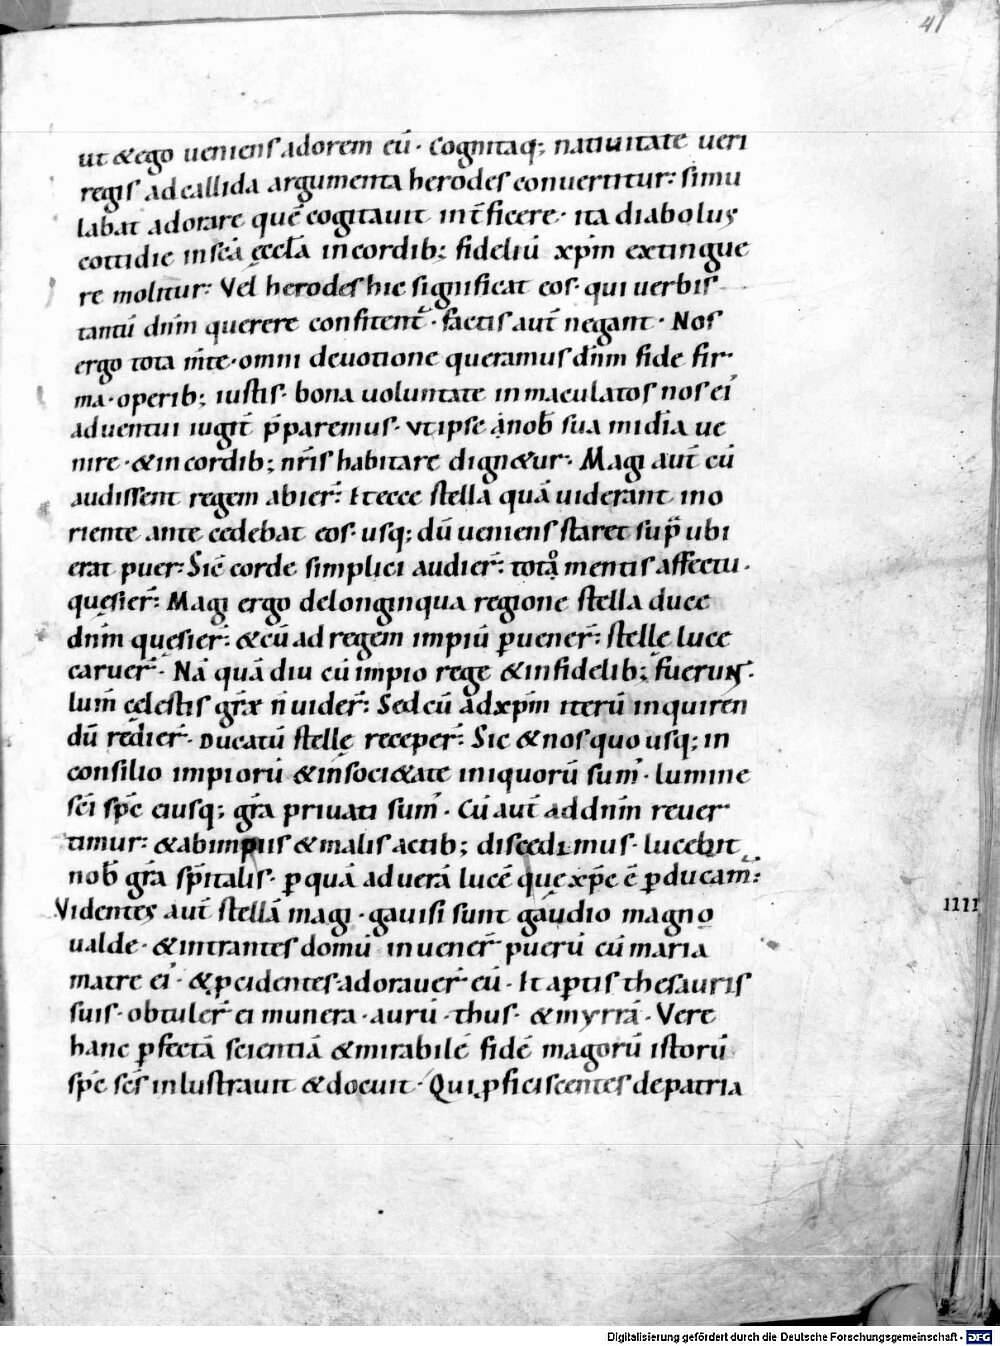 41
ut &ego ueniens adorem eū· Cognitaq; natiuitate ueri
regis ad callida argumenta herodes conuertitur: simu
labat adorare quē cogitauit int̄ficere· ita diabolus
cottidie in scā ęccła in cordib; fideliū xp̄m extingue
re molitur: Vel herodes hic significat eos· qui uerbis
tantū dn̄m querere confitent̄· factis aut̄ negant· Nos
ergo tota m̄te· omni deuotione queramus dn̄m fide fir·
ma· operib; iustis· bona uoluntate inmaculatos nos ei᾽
aduentui iugit̄ p̄paremus· Vt ipse ā nob̄ sua mīdia ue
nire· &in cordib; nr̄is habitare dign&ur· Magi aut̄ cū
audissent regem abier̄: Et ecce stella quā uiderant in o
riente antecedebat eos· usq; dū ueniens staret sup̄ ubi
erat puer: Sic̄ corde simplici audier̄: totǫ mentis affectu·
quęsier̄: Magi ergo de longinqua regione stella duce
dn̄m quęsier̄: &cū ad regem impiū ꝑuener̄: stellę luce
caruer̄· Nā quādiu cū impio rege &infidelib; fuerunt·
lum̄ cęlestis gr̄æ n̄ uider̄: Sed cū ad xp̄m iterū inquiren
dū redier̄· Ducatū stellę receper̄: Sic &nos quo usq; in
consilio impiorū &in soci&ate iniquorū sum᾽· lumine
sc̄i sp̄c eiusq; gr̄a priuati sum᾽· Cū aut̄ ad dn̄m reuer
timur: &ab impiis &malis actib; discedimus· lucebit
nob̄ gr̄a sp̄italis· ꝑ quā ad uerā lucē quę xp̄c ē ꝑducam̄:
Videntes aut̄ stellā magi· gauisi sunt gaudio magno
IIII
ualde· &intrantes domū inuener̄ puerū cū maria
matre ei᾽· &ꝓcidentes· adorauer̄ eū· Et aꝑtis thesauris
suis· obtuler̄ ei munera· aurū· thus· &myrrā· Vere
hanc ꝑfectā scientiā &mirabilē fidē magorū istorū
sp̄c sc̄s inlustrauit &docuit· Qui ꝓficiscentes de patria
Digitalisierung gefördert durch die Deutsche Forschungsgemeinschaft - DFG